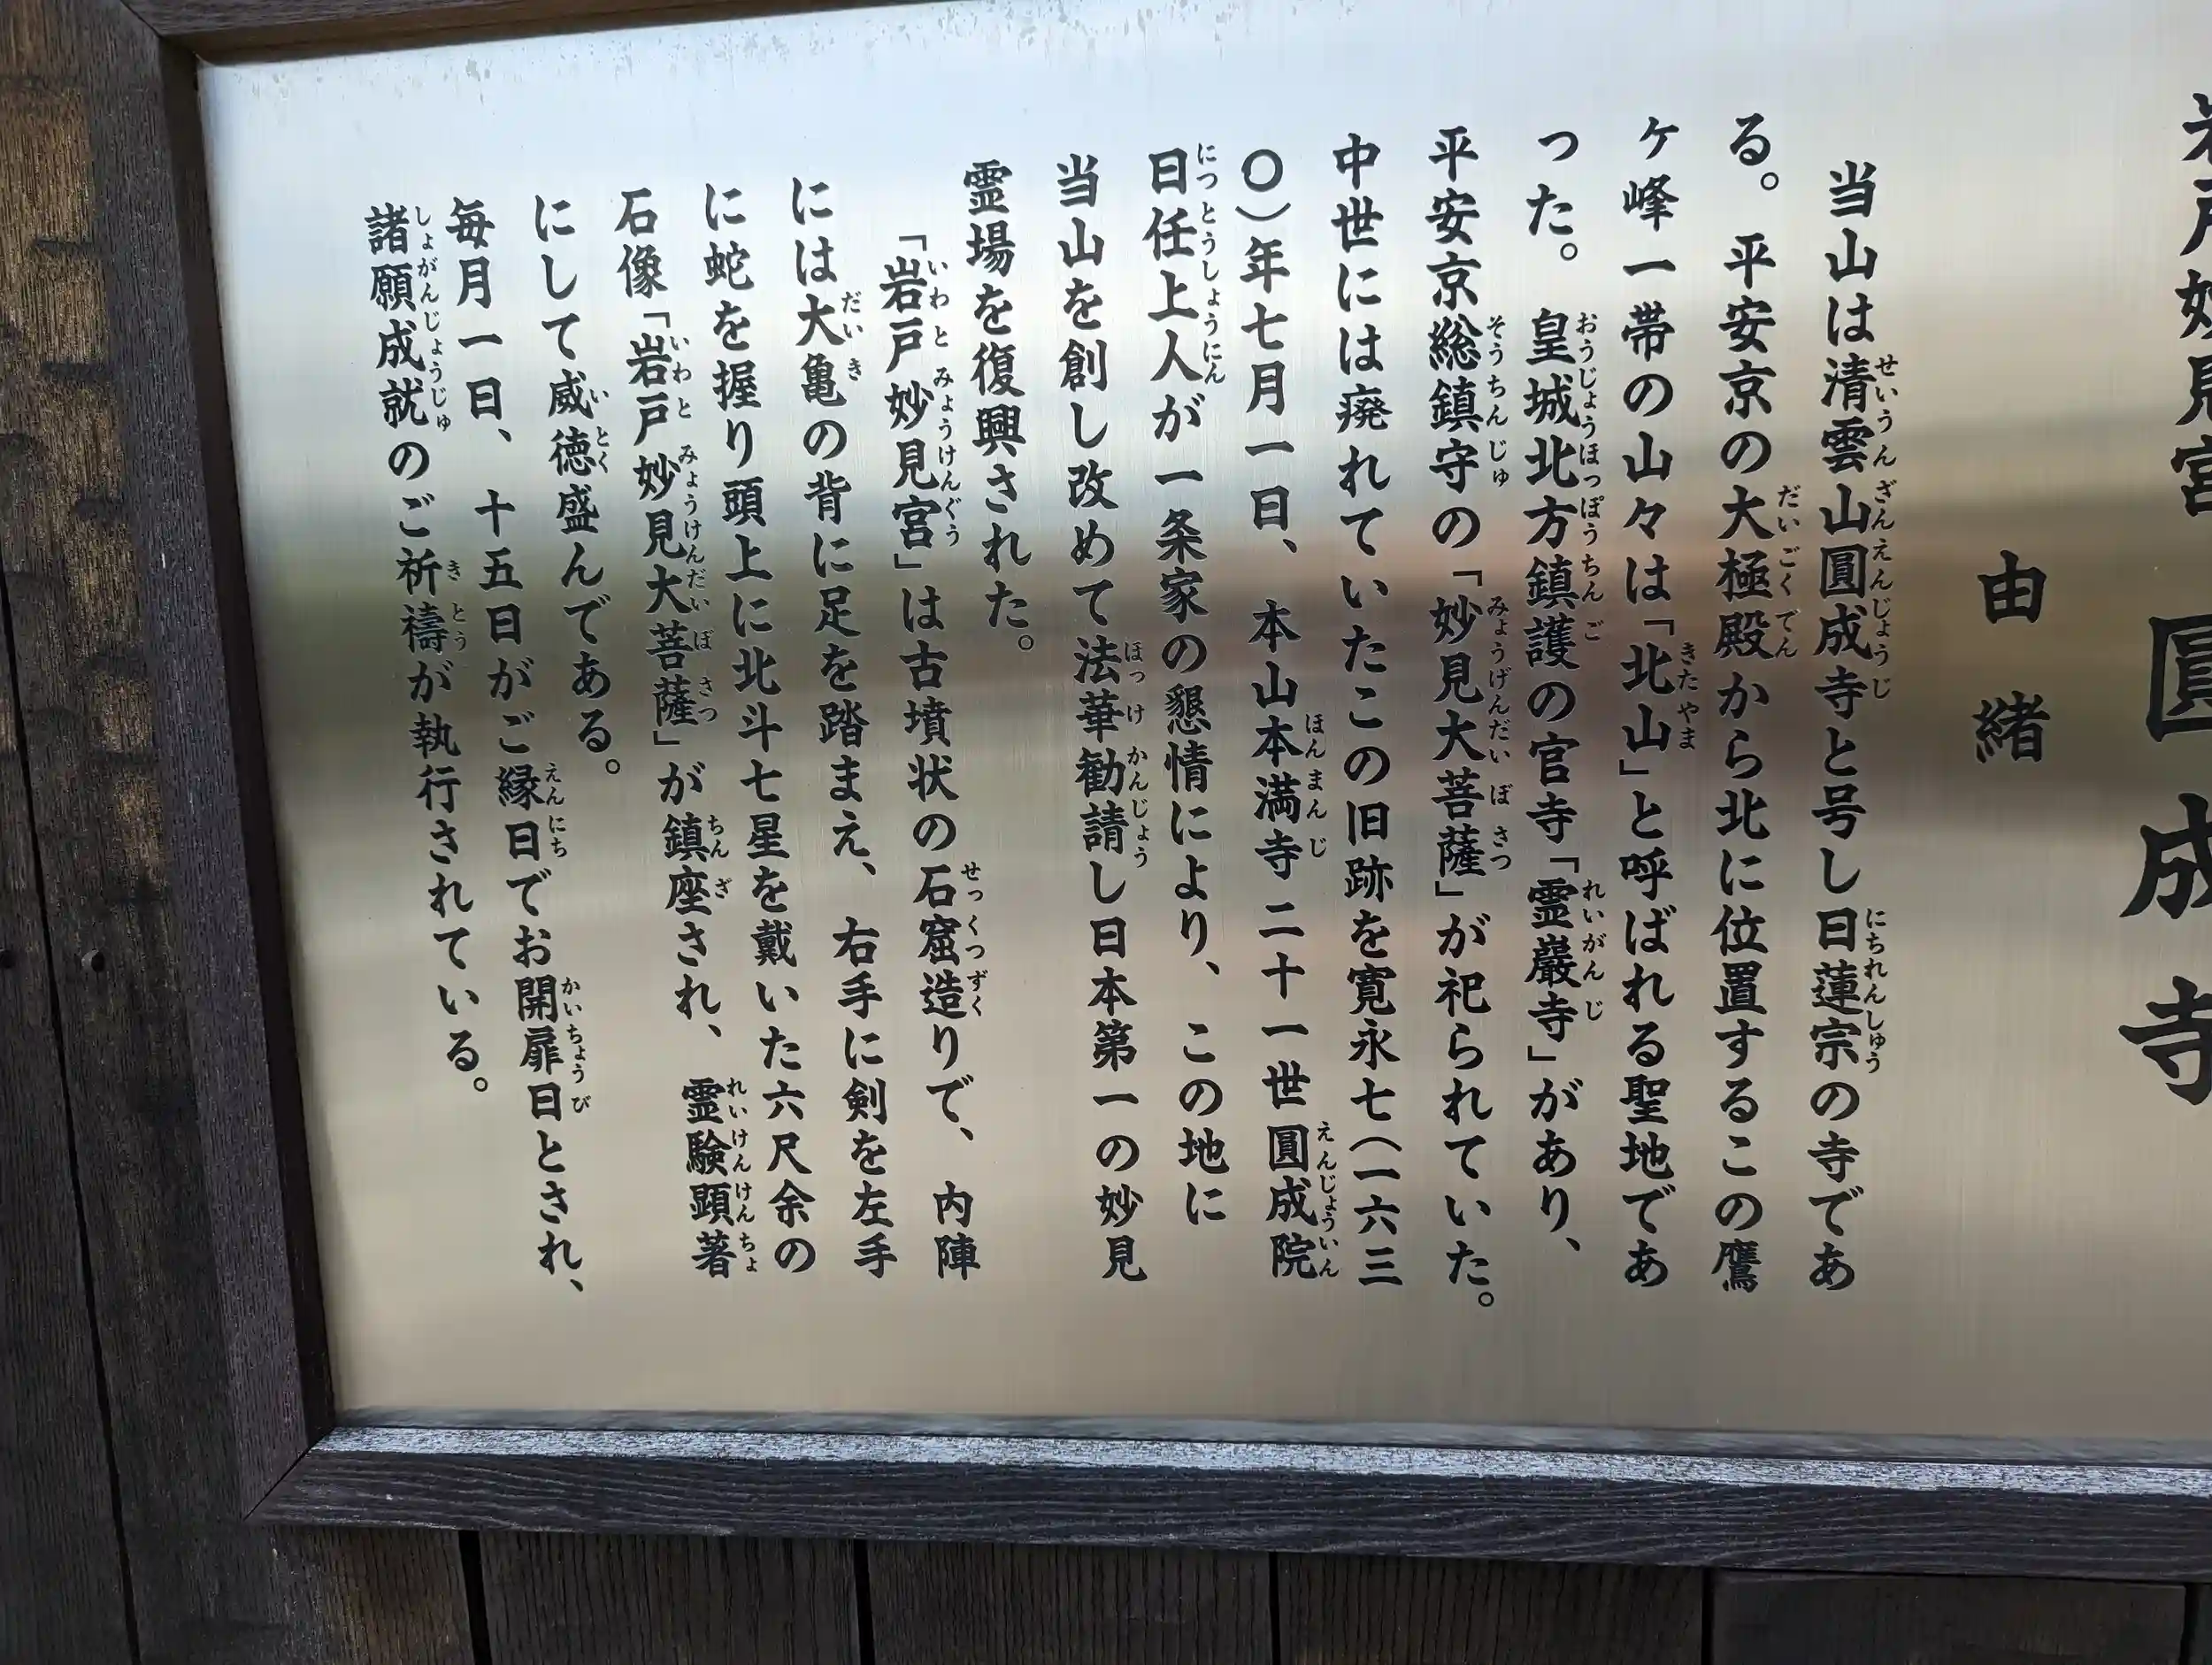 岩戸妙見宮 圓成寺
由緒
当山は清雲山圓成寺と号し日蓮宗の寺であ
る。平安京の大極殿から北に位置するこの鷹
ヶ峰一帯の山々は「北山」と呼ばれる聖地であ
った。皇城北方鎮護の官寺「霊巌寺」があり、
平安京総鎮守の「妙見大菩薩」が祀られていた。
中世には廃れていたこの旧跡を寛永七(一六三
〇)年七月一日、本山本満寺二十一世圓成院
日任上人が一条家の懇情により、この地に
当山を創し改めて法華勧請し日本第一の妙見
霊場を復興された。
「岩戸妙見宮」は古墳状の石窟造りで、内陣
には大亀の背に足を踏まえ、右手に剣を左手
に蛇を握り頭上に北斗七星を戴いた六尺余の
石像「岩戸妙見大菩薩」が鎮座され、霊験顕著
にして威徳盛んである。
毎月一日、十五日がご縁日でお開扉日とされ、
諸願成就のご祈禱が執行されている。